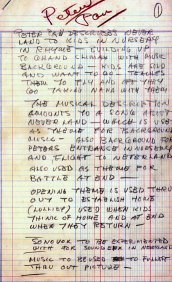 Peter Pan
1
PETER PAN DESCRIBES NEVER
LAND TO KIDS IN NURSERY
IN RHYME - BUILDING UP
TO GRAND CLIMAX WITH MUSIC
BACKGROUND - KIDS ARE SOLD
AND WANT TO GO - TEACHES
THEM TO FLY AND OFF THEY
GO TAKING NANA WITH THEM
THE MUSICAL DESCRIPTION
AMOUNTS TO A SONG ABOUT
NEVERLAND - WHICH IS USED
AS THEME FOR BACKGROUND
MUSIC - ALSO BACKGROUND FOR
PETERS ENTRANCE IN NURSERY
AND FLIGHT TO NEVERLAND
ALSO USED AS THEME FOR
BATTLE AT END -
OPENING THEME IS USED THRU
OUT TO ESTABLISH HOME
(LULLABY) USED WHEN KIDS
THINK OF HOME AND AT END
WHEN THEY RETURN -
SONOVOX TO BE EXPERIMENTED
WITH FOR SOUND EFX IN NEVERLAND
MUSIC TO BE USED TO FULLEST
THRU OUT PICTURE -